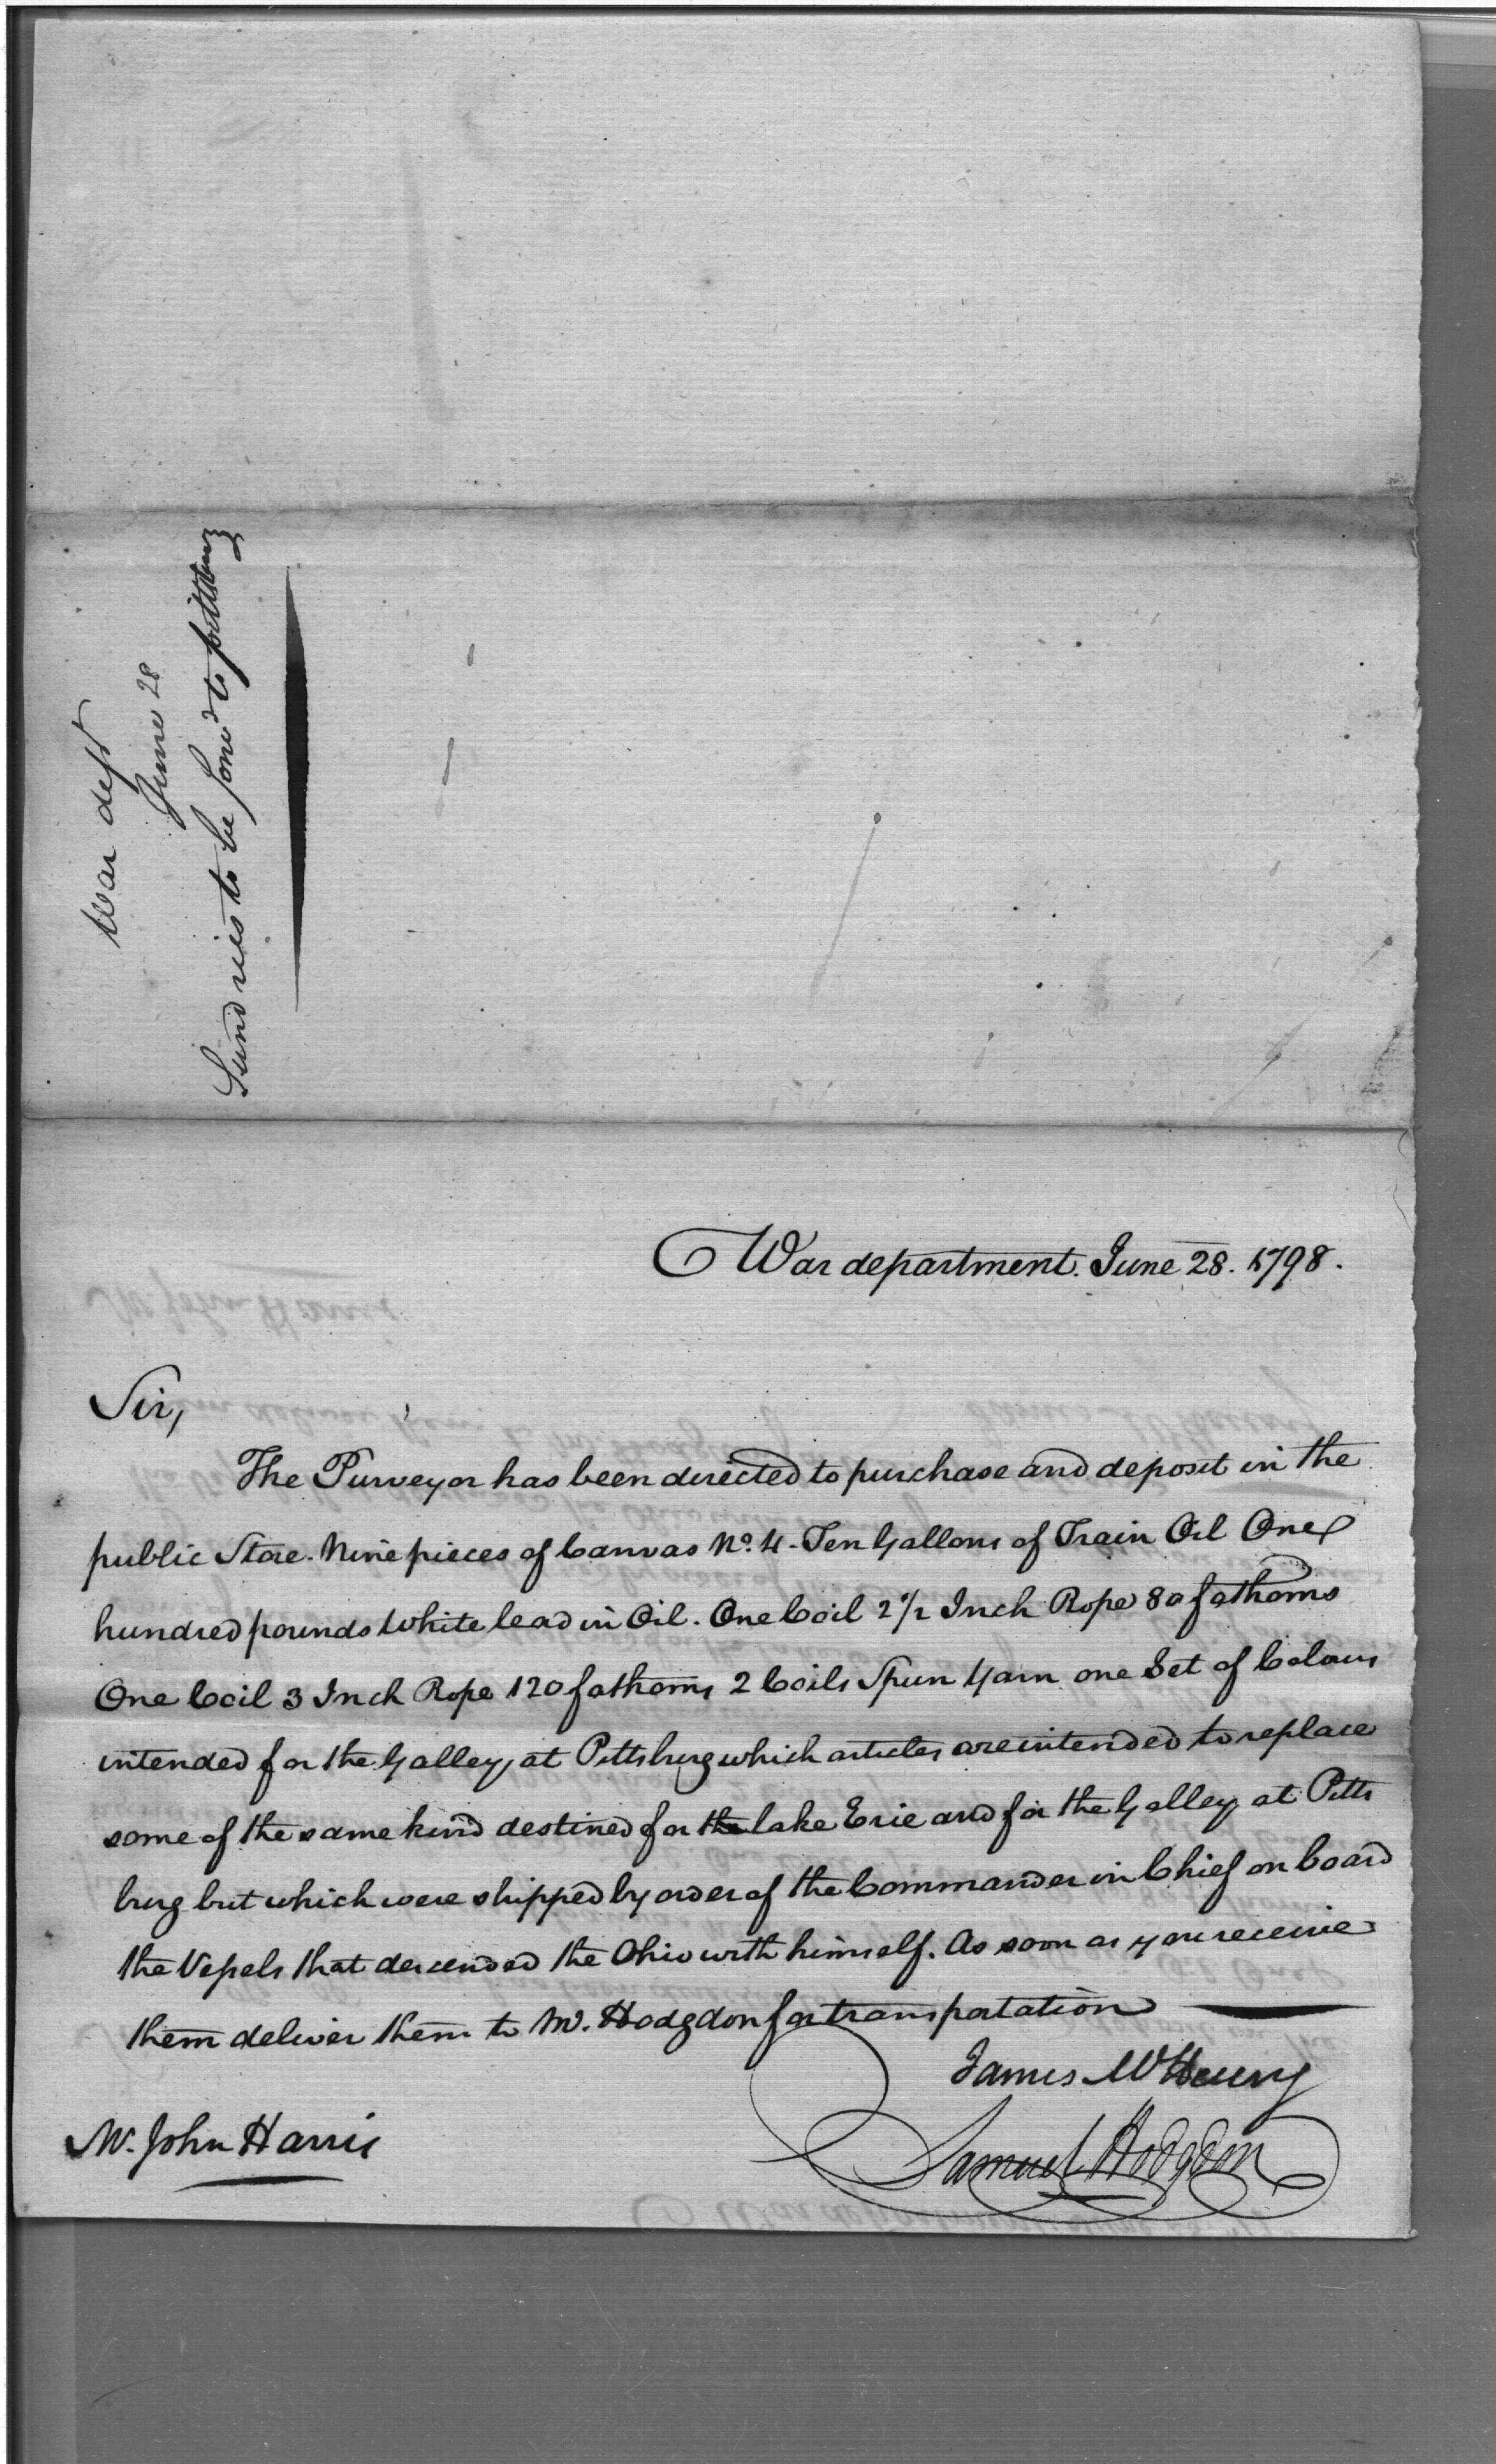 War dept
June 28
Sundries to be forwd to pittsburg
War department. June 28. 1798.
Sir,
The Purveyor has been directed to purchase and deposit in the
public Store. Nine pieces of Canvas No. 4. Ten Gallons of Train Oil One
hundred pounds White lead in Oil. One Coil 2 1/2 Inch Rope 80 fathoms
One Coil 3 Inch Rope 120 fathoms 2 Coils Spun Yarn one Set of Colours
intended for the Galley, at Pittsburg which articles are intended to replace
some of the same kind destined for the lake Erie and for the Galley, at Pitts
burg but which were shipped by order of the Commander in Chief on board
the Vessels that descended the Ohio with himself. As soon as you receive
them deliver them to Mr. Hodgdon for transportation
James McHenry
Samuel Hodgdon
Mr. John Harris